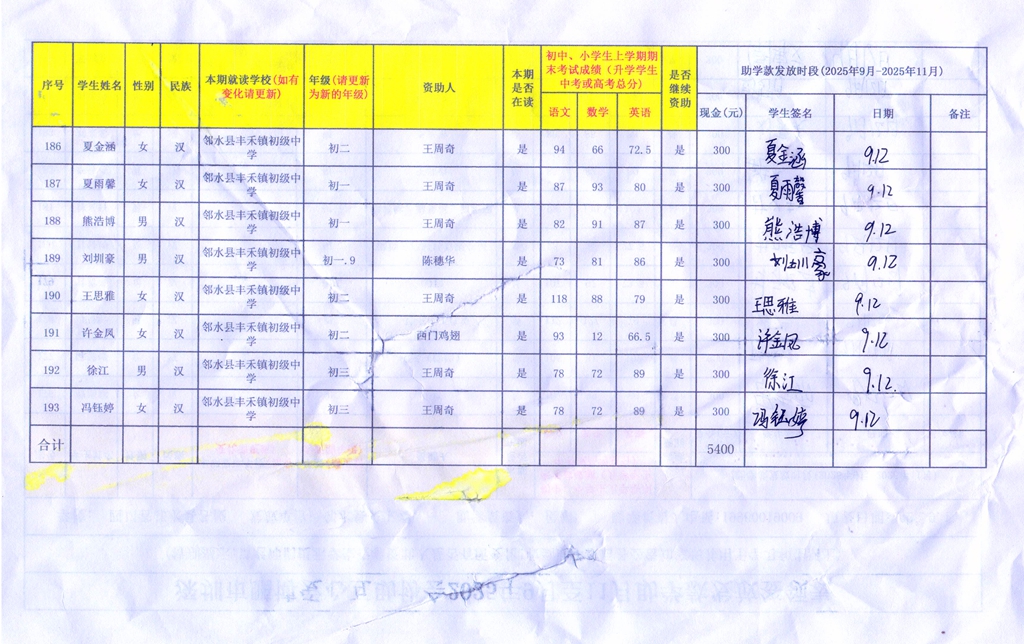 序号 学生姓名 性别 民族 本期就读学校(如有变化请更新) 年级(请更新为新的年级) 资助人 本期是否在读 初中、小学生上学期期末考试成绩（升学学生中考或高考总分） 是否继续资助 助学款发放时段(2025年9月-2025年11月)
语文 数学 英语 现金(元) 学生签名 日期 备注
186 夏金涵 女 汉 邻水县丰禾镇初级中学 初二 王周奇 是 94 66 72.5 是 300 夏金涵 9.12
187 夏雨馨 女 汉 邻水县丰禾镇初级中学 初一 王周奇 是 87 93 80 是 300 夏雨馨 9.12
188 熊浩博 男 汉 邻水县丰禾镇初级中学 初一 王周奇 是 82 91 87 是 300 熊浩博 9.12
189 刘圳豪 男 汉 邻水县丰禾镇初级中学 初一.9 陈穗华 是 73 81 86 是 300 刘圳豪 9.12
190 王思雅 女 汉 邻水县丰禾镇初级中学 初二 王周奇 是 118 88 79 是 300 王思雅 9.12
191 许金凤 女 汉 邻水县丰禾镇初级中学 初二 西门鸡翅 是 93 12 66.5 是 300 许金凤 9.12
192 徐江 男 汉 邻水县丰禾镇初级中学 初三 王周奇 是 78 72 89 是 300 徐江 9.12.
193 冯钰婷 女 汉 邻水县丰禾镇初级中学 初三 王周奇 是 78 72 89 是 300 冯钰婷 9.12
合计 5400